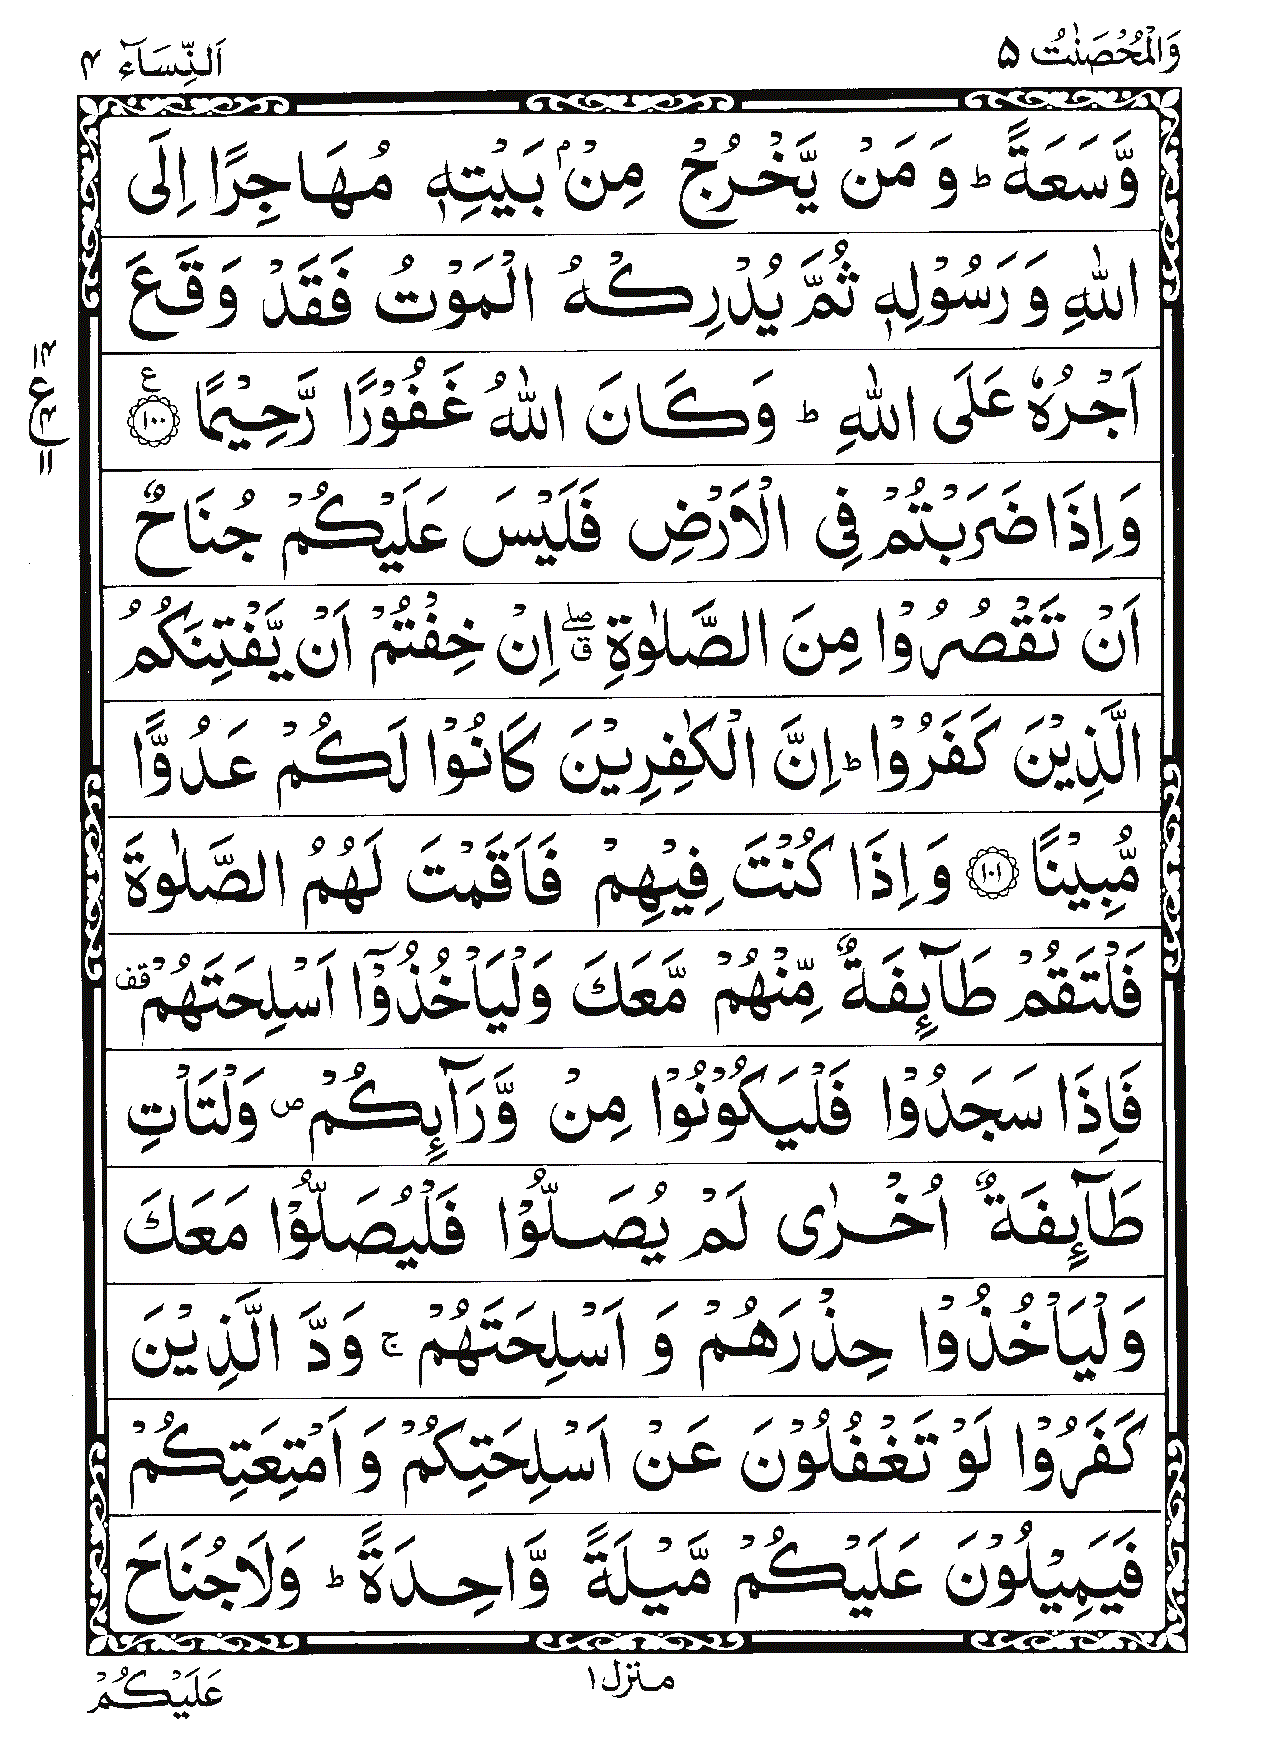 وَالْمُحْصَنٰتُ ۵ اَلنِّسَآء ۴
وَّسَعَةً ؕ وَ مَنْ يَّخْرُجْ مِنْۢ بَيْتِهٖ مُهَاجِرًا اِلَى
اللّٰهِ وَ رَسُوْلِهٖ ثُمَّ يُدْرِكْهُ الْمَوْتُ فَقَدْ وَقَعَ
اَجْرُهٗ عَلَى اللّٰهِ ؕ وَكَانَ اللّٰهُ غَفُوْرًا رَّحِيْمًا ۱۰۰ ع
۱۴ ع ۴ ۱۱
وَاِذَا ضَرَبْتُمْ فِى الْاَرْضِ فَلَيْسَ عَلَيْكُمْ جُنَاحٌ
اَنْ تَقْصُرُوْا مِنَ الصَّلٰوةِ ۖۗ اِنْ خِفْتُمْ اَنْ يَّفْتِنَكُمُ
الَّذِيْنَ كَفَرُوْا ؕ اِنَّ الْكٰفِرِيْنَ كَانُوْا لَكُمْ عَدُوًّا
مُّبِيْنًا ۱۰۱ وَاِذَا كُنْتَ فِيْهِمْ فَاَقَمْتَ لَهُمُ الصَّلٰوةَ
فَلْتَقُمْ طَآٮِٕفَةٌ مِّنْهُمْ مَّعَكَ وَلْيَاْخُذُوْۤا اَسْلِحَتَهُمْ قف
فَاِذَا سَجَدُوْا فَلْيَكُوْنُوْا مِنْ وَّرَآٮِٕكُمْ ص وَلْتَاْتِ
طَآٮِٕفَةٌ اُخْرٰى لَمْ يُصَلُّوْا فَلْيُصَلُّوْا مَعَكَ
وَلْيَاْخُذُوْا حِذْرَهُمْ وَ اَسْلِحَتَهُمْ ۚ وَدَّ الَّذِيْنَ
كَفَرُوْا لَوْ تَغْفُلُوْنَ عَنْ اَسْلِحَتِكُمْ وَ اَمْتِعَتِكُمْ
فَيَمِيْلُوْنَ عَلَيْكُمْ مَّيْلَةً وَّاحِدَةً ؕ وَلَا جُنَاحَ
منزل ۱
عَلَيْكُمْ